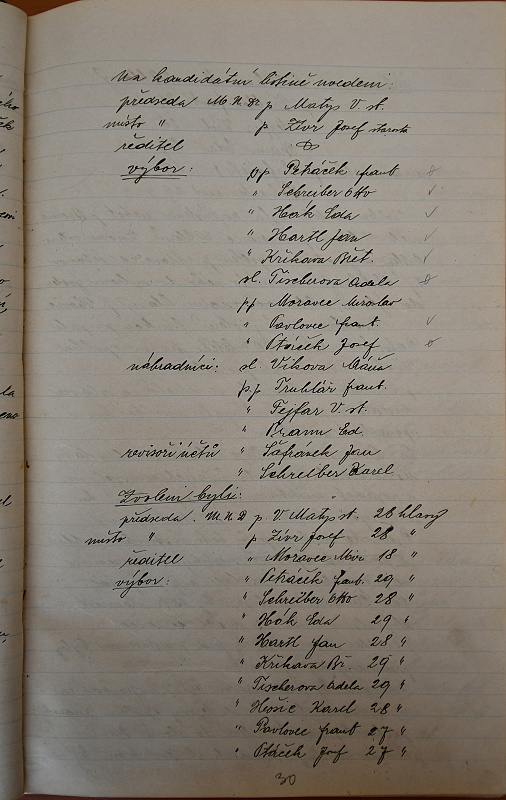 Na kandidátní listině uvedeni:
předseda M. N. D. p Matys V. st.
místo " p Zívr Josef starosta
ředitel
výbor: pp Petráček frant
" Schreiber Otto
" Hák Eda
" Hartl Jan
" Křikava Břet.
sl. Tischerova Adela
pp Moravec Miroslav
" Pavlovec frant.
" Ptáček Josef
náhradníci: sl. Vikova Máňa
p.p. Truhlář frant.
" Fejfar V. st.
" Brann Ed.
revisoři účtů " Šafránek Jan
" Schreiber Karel
Zvoleni byli:
předseda. M. N. D p. V. Matys st. 28 hlasy
místo " p Zívr Josef 28 "
ředitel " Moravec Mir 18 "
výbor: " Petráček frant. 29 "
" Schreiber Otto 28 "
" Hák Eda 29 "
" Hartl Jan 28 "
" Křikava Bř. 29 "
" Tischerova Adela 29 "
" Karel 28 "
" Pavlovec frant 27 "
" Ptáček Josef 27 "
30